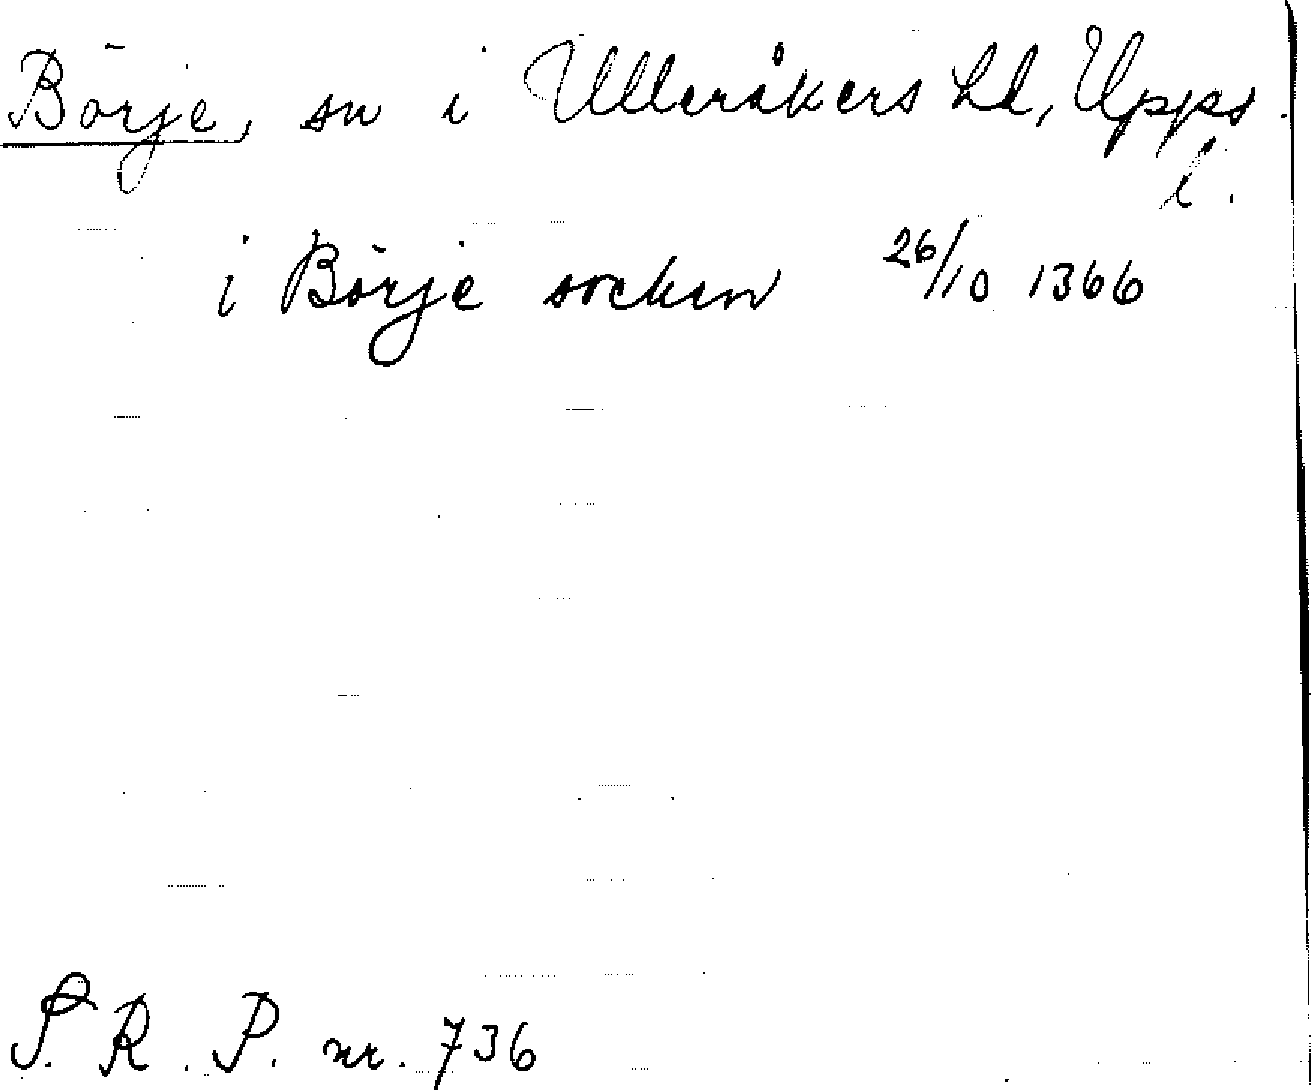 Börje, sn i Ulleråkers hd, Upps.
l.
i Börje socken 26/10 1366
S. R. P. nr. 736